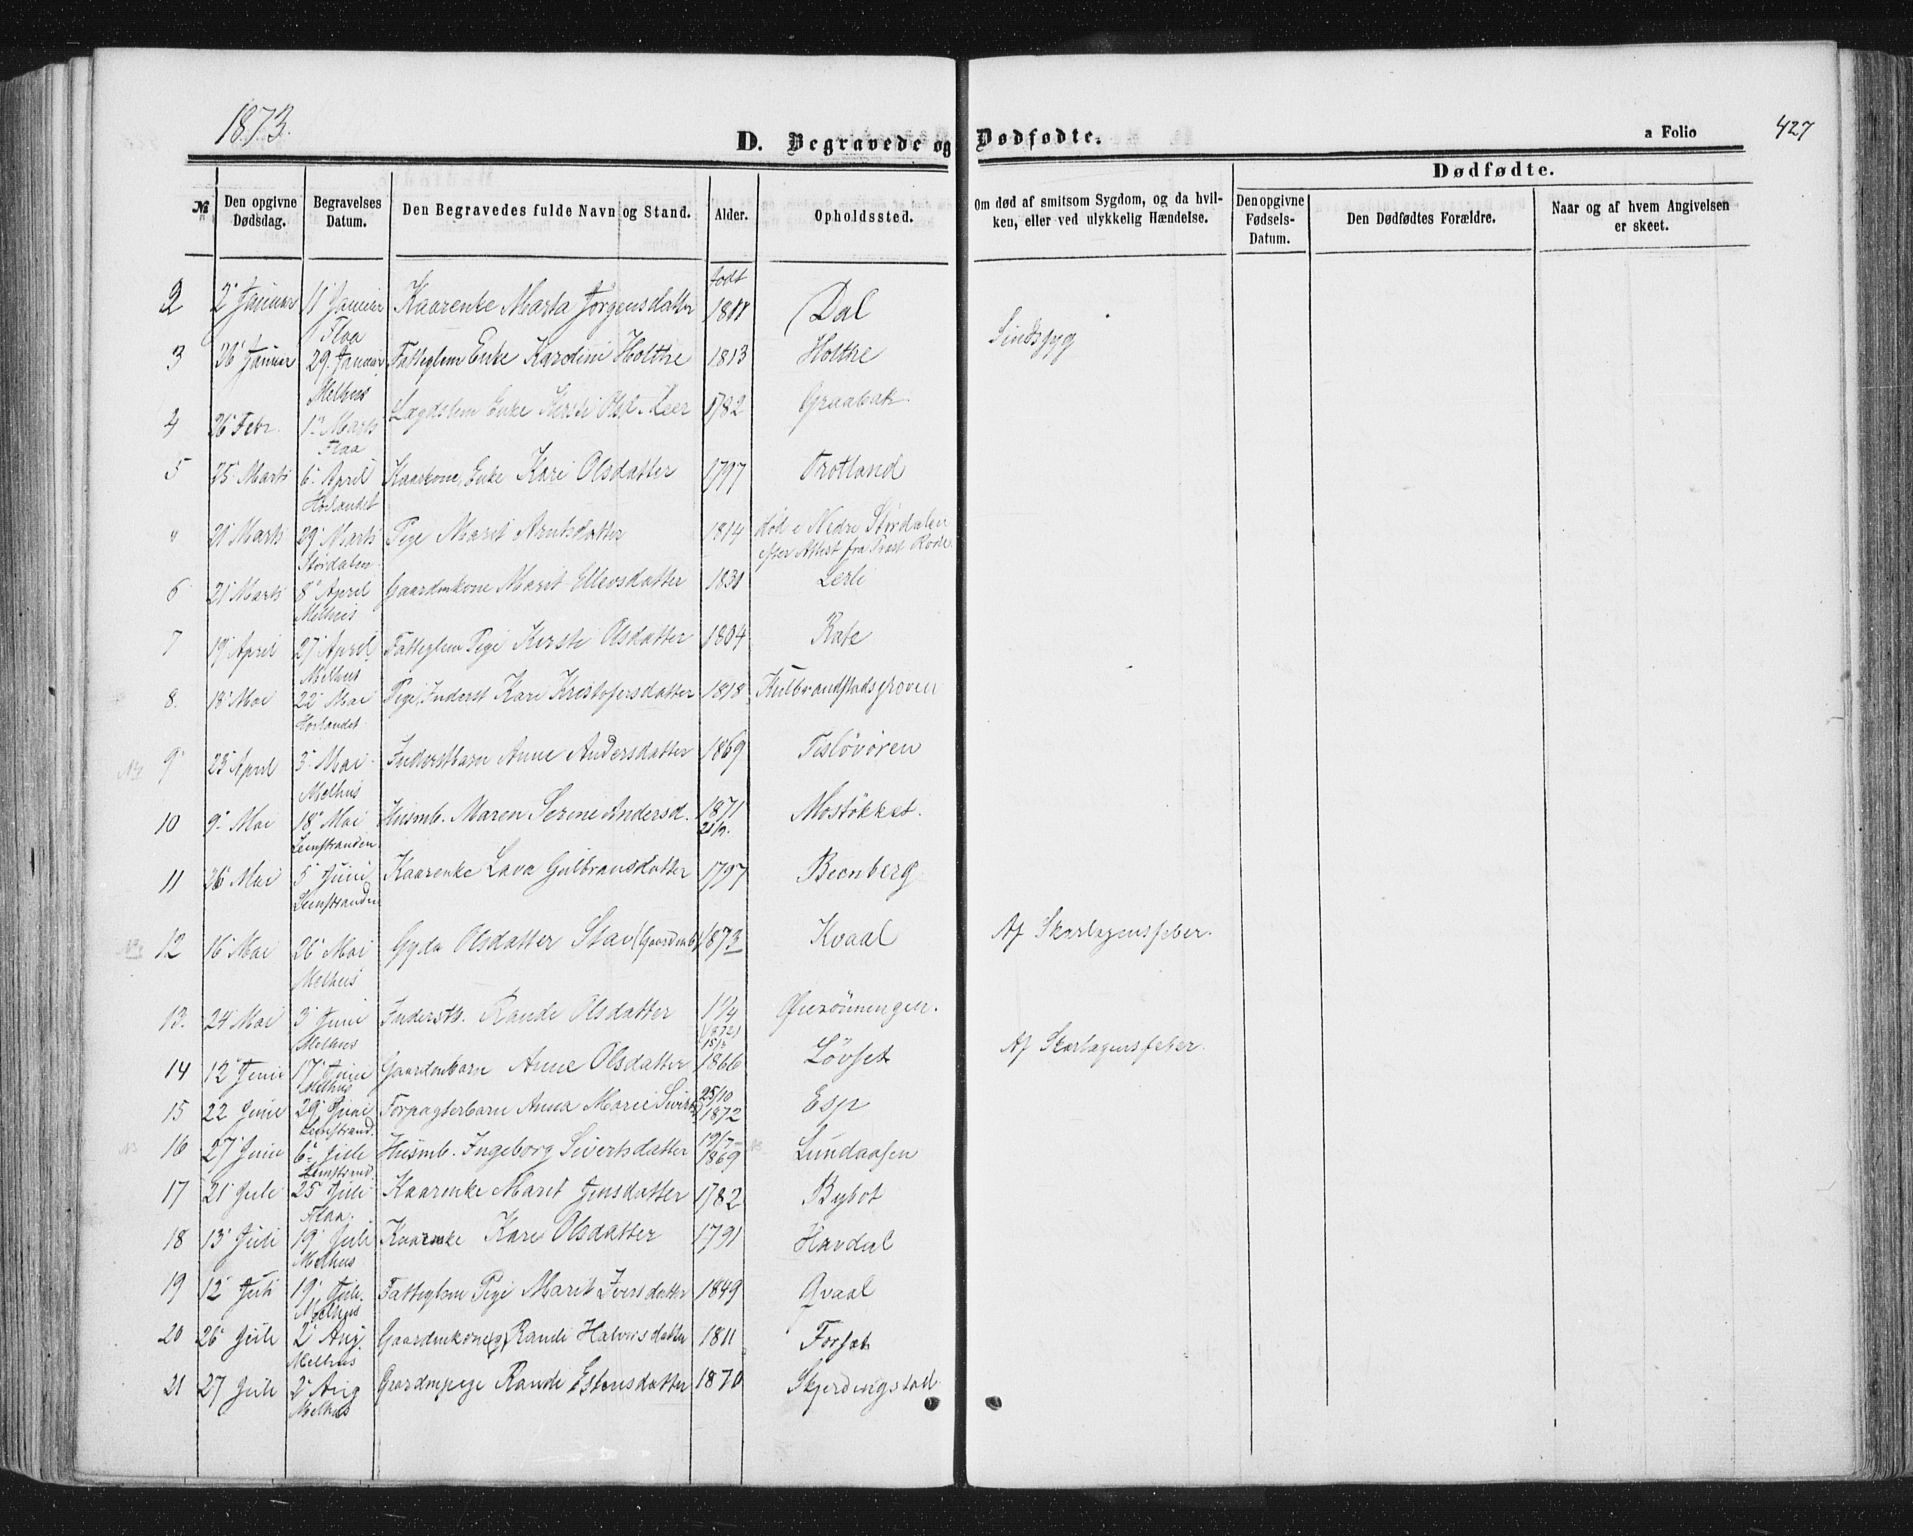 1873.
427
D. Begravede og Dødfødte.
a Folio
Dødfødte.
№ Den opgivne Dødsdag. Begravelses Datum. Den Begravedes fulde Navn og Stand. Alder. Opholdssted. Om død af smitsom Sygdom, og da hvilken, eller ved ulykkelig Hændelse. Den opgivne Fødsels-Datum. Den Dødfødtes Forældre. Naar og af hvem Angivelsen er skeet.
født
2 2' Januar 11' Januar Kaarenke Marta Jørgensdatter 1811 Dal
Flaa
3 26' Januar 29' Januar Fatteglem Enke Karolini Holthe 1813 Holthe Sindssyg
Melhus
4 26' Febr. 1' Marts Lægdslem Enke Kirsti Olsd. 1782 Graabak
Flaa
5 25' Marts 6' April Kaarkone, Enke Kari Olsdatter 1797 Trotland
Horlandet
" 21' Marts 29' Marts Pige Marit Arntsdatter 1814 død i Nedre Størdalen
Størdalen efter Attest fra Præst Rode
6 21' Marts 8' April Gaardmkone Marit Ellevsdatter 1831 Lerli
Melhus
7 19' April 27' April Fatteglem Pige Kirsti Olsdatter 1804 Rate
Melhus
8. 18' Mai 22' Mai Pige, Inderst Kari Kristofersdatter 1818 Hulbrandstadsgroven
Horlandet
9 23' April 3' Mai Inderstbarn Anne Andersdatter 1869 Tesløvøren
Melhus
10 9' Mai 18' Mai Husmb. Maren Serine Andersd. 1871 Mostøkket.
Leinstranden
11 26' Mai 5' Juni Kaarenke Lava Gulbransdatter 1797 Benberg
Leinstranden
12 16' Mai 26' Mai Gyda Olsdatter Stav (Gaardmb.) 1873 Kvaal Af Skarlagensfeber.
Melhus
13. 24' Mai 3' Juni Inderstb. Rande Olsdatter 1 1/4 Øierønningen.
Melhus
14 12' Juni 17' Juni Gaardmbarn Anne Olsdatter 1866 Løvset Af Skarlagensfeber.
Melhus
15 22' Juni 29' Juni Forpagterbarn Anna Marie Sivertsd. 25/10 1872 Esp
Leinstrand.
16 27' Juni 6' Juli Husmb. Ingeborg Sivertsdatter 19/7 1869 Lundaasen
Leinstrand
17 21' Juli 25' Juli Kaarenke Marit Jensdatter 1782 Bybot
Flaa.
18 13' Juli 19' Juli Kaarenke Kari Olsdatter 1791 Havdal
Melhus
19 12' Juli 19' Juli. Fatteglem Pige Marit Iversdatter 1849 Qvaal
Melhus
20 26' Juli 2' Aug. Gaardmkone Randi Halvorsdatter 1811 Forset
Melhus
21 27' Juli 2' Aug Gaardmpige Randi Estensdatter 1870 Skjerdingstad
Melhus